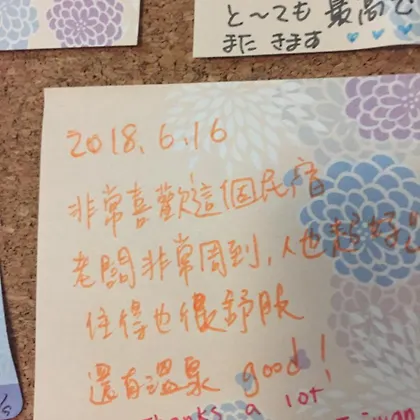 と〜ても最高で
また きます
2018.6.16
非常喜歡這個民宿
老闆非常周到,人也超好!!
住得也很舒服
還有溫泉 good!
Thanks a lot